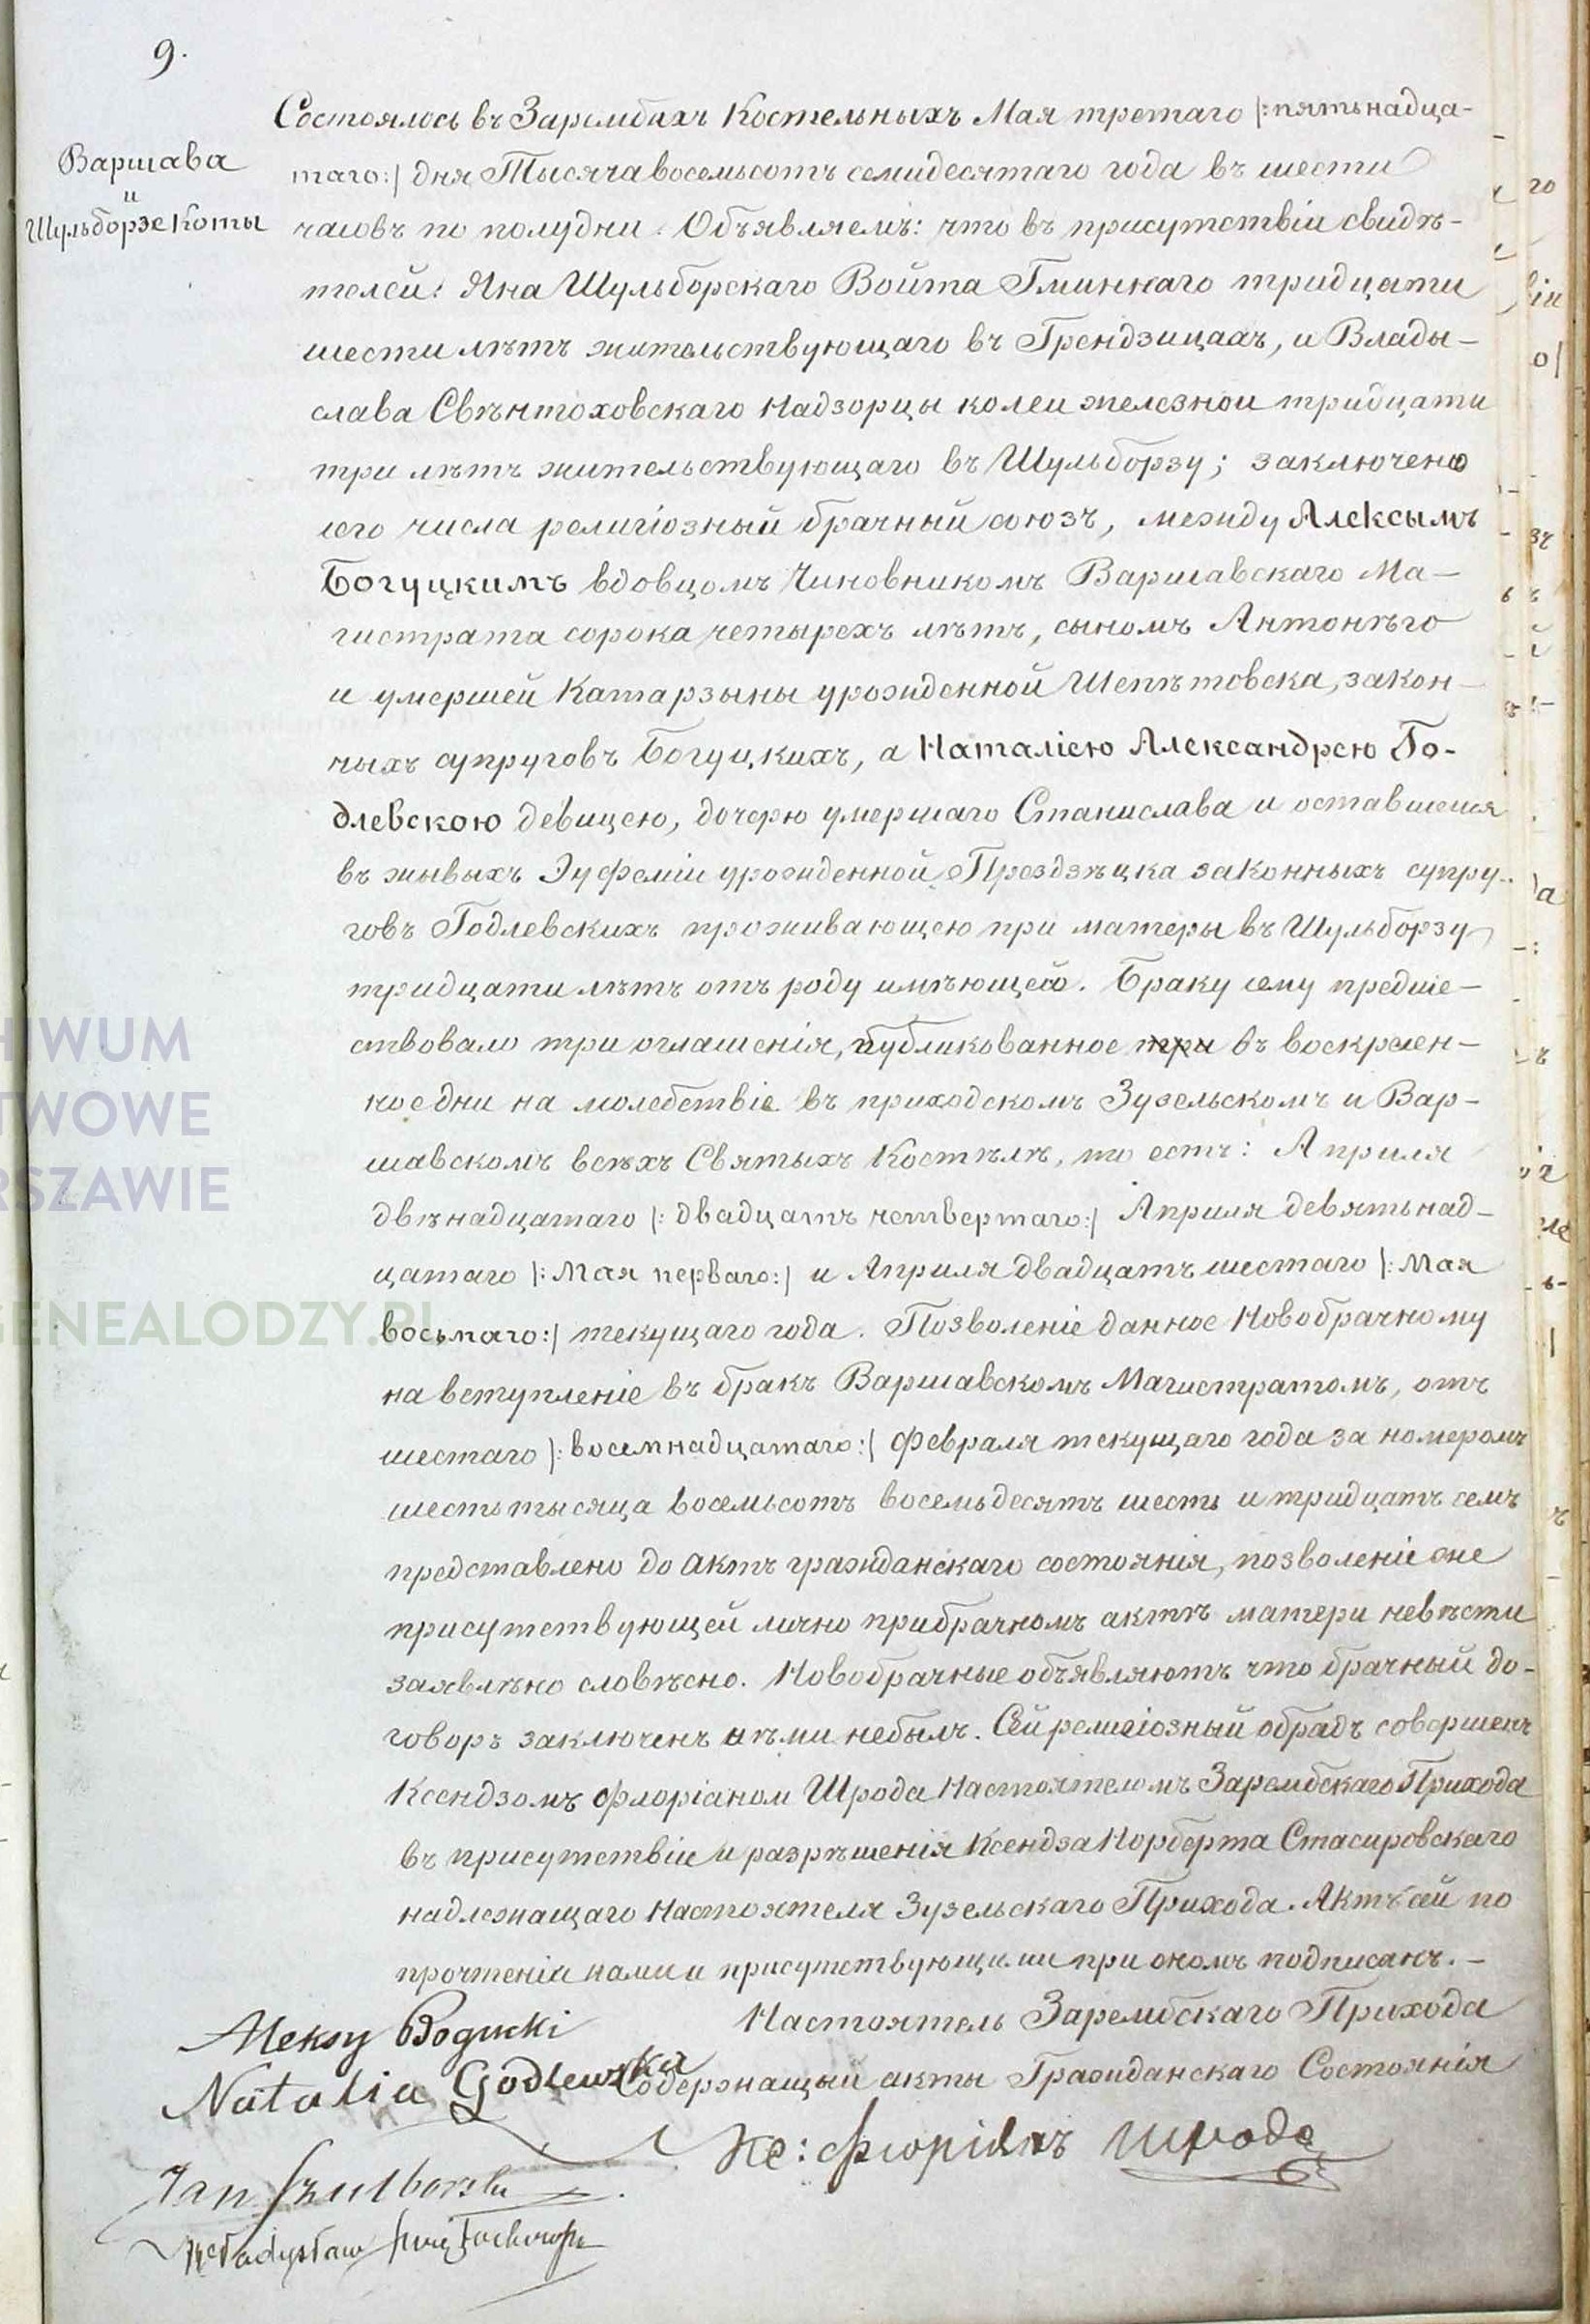 9.
Варшава
и
Шульборже Коты
Состоялось въ Зарембахъ Костельныхъ Мая третаго |:пятьнадца-
таго:| дня Тысяча восемьсотъ семидесятаго года въ шести
часовъ по полудни. Объявляемъ: что въ присутствіи свидѣ-
телей: Яна Шульборскаго Войта Гминнаго тридцати
шести лѣтъ жительствующаго въ Грендзицахъ, и Влады-
слава Свѣнтоховскаго Надзорцы колеи железнои тридцати
три лѣтъ жительствующаго въ Шульборзу; заключено
сего числа религіозный брачный союзъ, между Алексымъ
Богуцкимъ вдовцомъ Чиновникомъ Варшавскаго Ма-
гистрата сорока четырехъ лѣтъ, сыномъ Антонѣго
и умершей Катарзыны урожденной Шепѣтовска, закон-
ныхъ супруговъ Богуцкихъ, а Наталіею Александрею Го-
длевскою девицею, дочерю умершаго Станислава и оставшейся
въ жывыхъ Эуфеміи урожденной Прездзѣцка законныхъ супру-
говъ Годлевскихъ проживающею при матеры въ Шульборзу
тридцати лѣтъ отъ роду имѣющей. Браку сему предше-
ствовало три оглашенія, публикованное три въ воскресен-
ное дни на молебствіе въ приходскомъ Зузельскомъ и Вар-
шавскомъ всѣхъ Святыхъ Костѣлѣ, то естъ: Априля
двѣнадцатаго |: двадцатъ четвертаго:| Априля девятьнад-
цатаго |: Мая перваго:| и Априля двадцатъ шестаго |: Мая
восьмаго:| текущаго года. Позволеніе данное Новобрачному
на вступленіе въ бракъ Варшавскомъ Магистратомъ, отъ
шестаго |: восемнадцатаго:| Февраля текущаго года за номеромъ
шесть тысяца восемьсотъ восемьдесятъ шесть и тридцатъ семъ
представлено до актъ гражданскаго состоянія, позволеніе оне
присутствующей лично при брачномъ актѣ матери невѣсти
заявлѣно словѣсно. Новобрачные объявляютъ что брачный до-
говоръ заключенъ нѣми небылъ. Сей религіозный обрадъ совершенъ
Ксендзомъ Флоріаном Шрода Настоятеломъ Зарембскаго Прихода
въ присутствіи и разрѣшенія Ксендза Норберта Стасировскаго
надлежащаго Настоятеля Зузельскаго Прихода. Актъ сей по
прочтеніи нами и присутствующими при ономъ подписанъ. -
Настоятель Зарембскаго Прихода
Содержащый акты Гражданскаго Состоянія
Кс: Флоріянъ Шрода
Aleksy Bogucki
Natalia Godlewska
Jan Szulborski
Władysław Świętochowski
HIWUM
TWOWE
RSZAWIE
GENEALODZY.PL